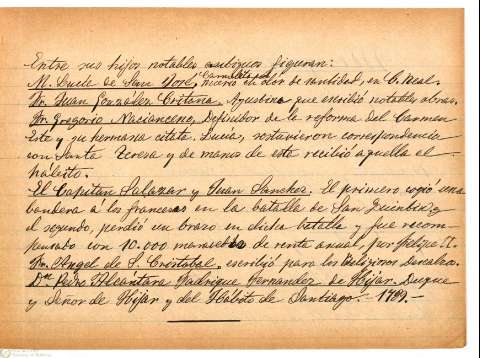 Entre sus hijos notables figuran:
M. Lucía de San José, Carmelita, murió en olor de santidad, en C. Real.
Fr. Juan González Critana, Agustino que escribió notables obras.
Fr. Gregorio Nacianceno, Definidor de la reforma del Carmen
Este y su hermana citada Lucía, sostuvieron correspondencia
con Santa Teresa y de manos de esta recibió aquella el
hábito.
El Capitán Salazar y Juan Sanchez. El primero cogió una
bandera á los franceses en la batalla de San Quintín y
el segundo, perdió un brazo en dicha batalla y fue recom-
pensado con 10.000 maravedís de renta anual, por Felipe II.
Fr. Angel de S. Cristobal, escribió para los Religiosos
Dn. Pedro Alcántara Fadrique Fernandez de Hijar. Duque
y Señor de Hijar y del Hábito de Santiago.